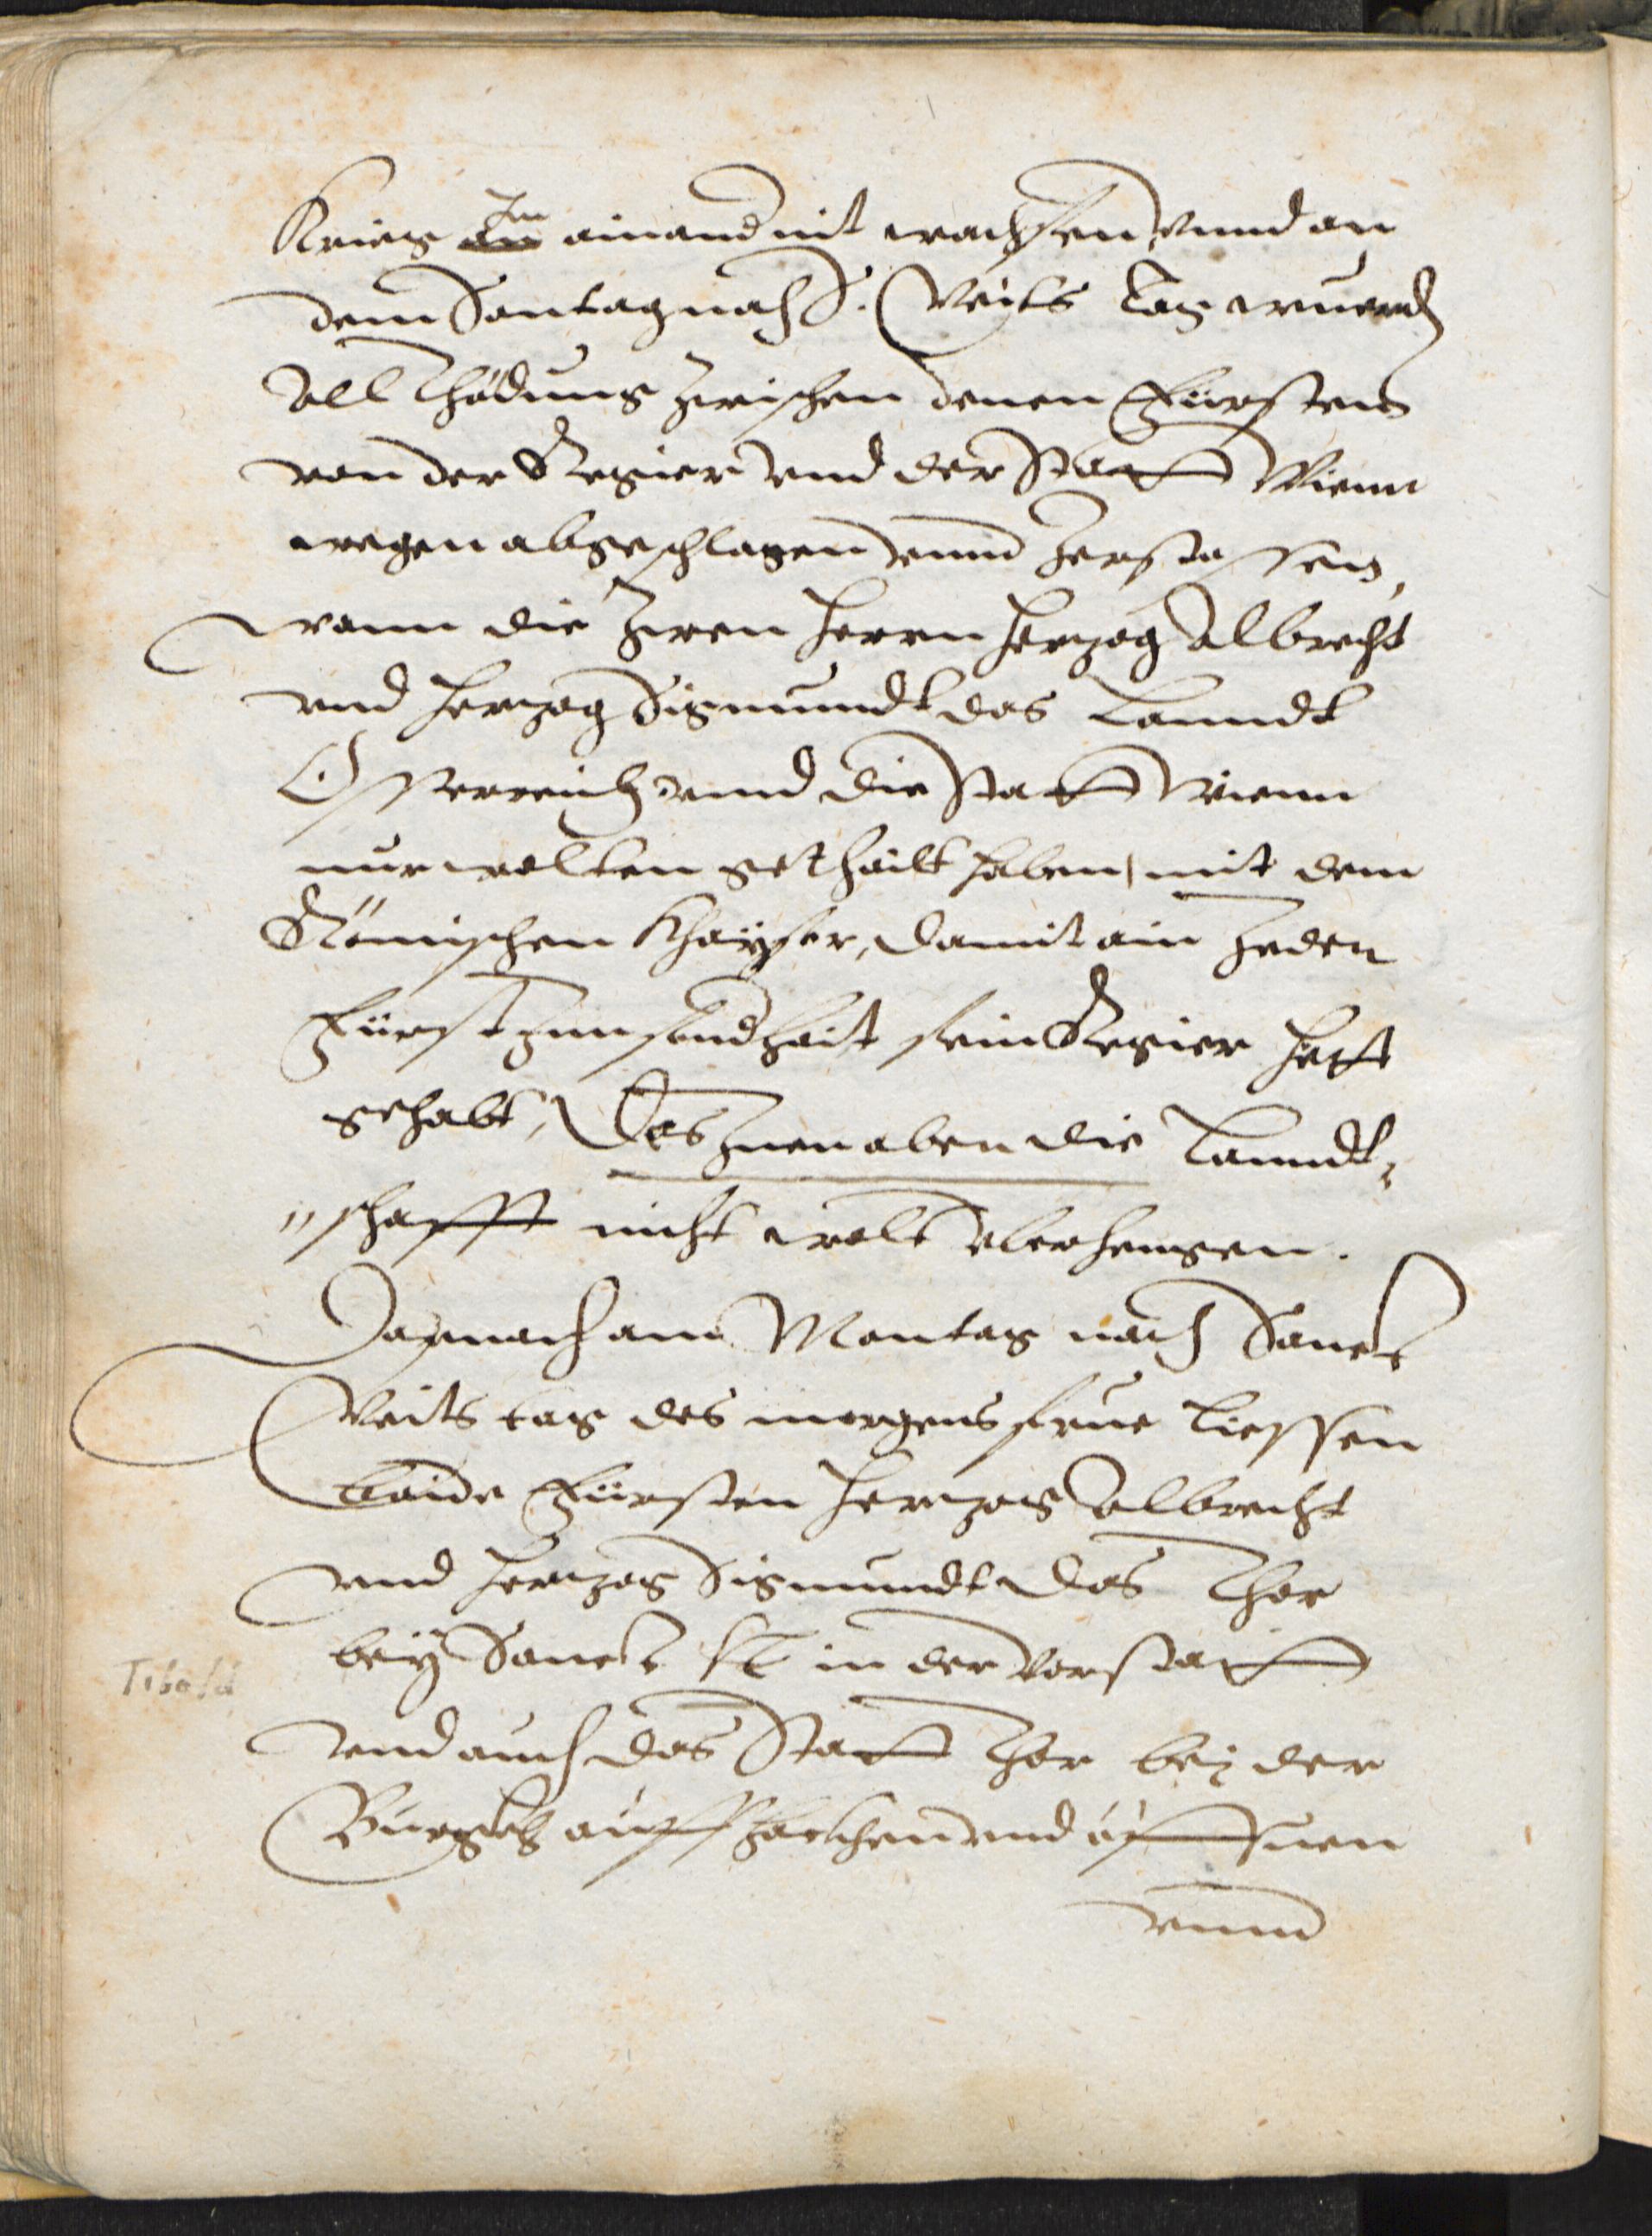 Krieg Zu ainand nit wachsen, vnnd an
dem Sontag nach S. Veyts tag wuerdt
All Thädung zwischen denen Fürsten
von der Regier vnd der Statt Wienn
wegen abgeschlagen vnnd Zerstossen,
wann die Zwen Herrn Herzog Albrecht
vnd Herzog Sigmundt das Lanndt
Össterreich vnnd die Statt Wienn
nur wolten gethailt haben, mit dem
Römischen Khayser, damit ain Jeder
Fürst Inn sonderhait sein Regier hett
gehabt, Das Inen aber die Lanndt,
"schafft nicht wolt verhengen.
Darnach am Montag nach Sanct
Veits tag des morgens frue liessen
baide Fürsten Herzog Albrecht
vnnd Herzog Sigmundt das Thor
bey Sanct in der Vorstatt
vnnd auch das Statt Thor bej der
Burgkh auffhackhen vnd öffnen
vnnd
Tibold